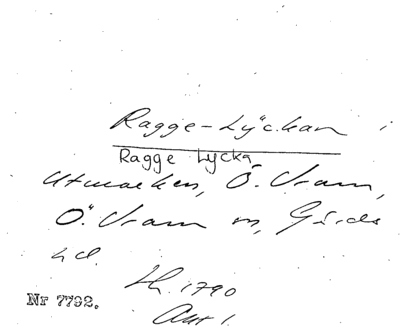 Ragge-Lyckan i
Ragge Lycka
Utmarken, Ö. Vram,
Ö. Vram sn, Gärds
hd.
Lh. 1790
Nr 7792.
Akt 1.